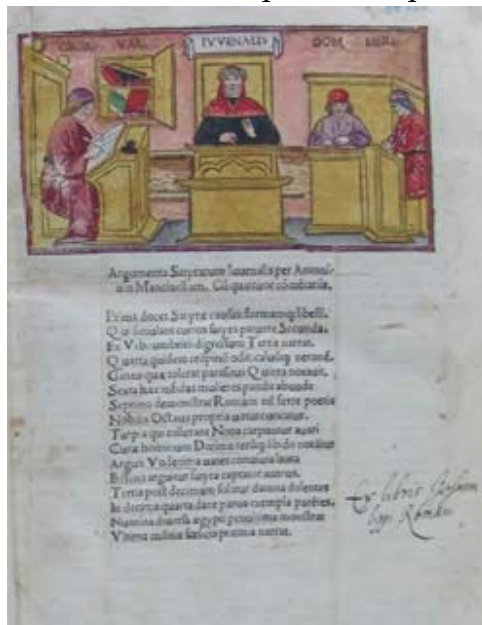 VAL. IVVENALIS DOM. MER.
Argumenta Satyrarum Iuuenalis per Antoni-
um Mancinellum. Cū quattuor cōmētariis.
Prima docet Satyræ causas formamq; libelli.
Q ui simulant curios satyra Secunda.
Ex Vrbe umbritii digressum Tertia narrat.
Q uarta quidem crispini odit
Q uinta
Sexta mulieres pandit abunde
Septima demonstrat Romam nil ferre poetis
Nobilis Octaua propria uirtute uocatur.
Turpia qui tolerant Nona carpuntur auari
Cura hominum Decima libido notātur
Arguit Vndecima uates conuiuia lauta
Bissena arguitur satyra captator auarus.
Tertia post decimam solatur damna dolentes
In decima quarta dant praua exempla parētes.
Numina diuersa ægypti penultima monstrat
Vltima militiæ fœlicis præmia narrat.
Ex libris Romani